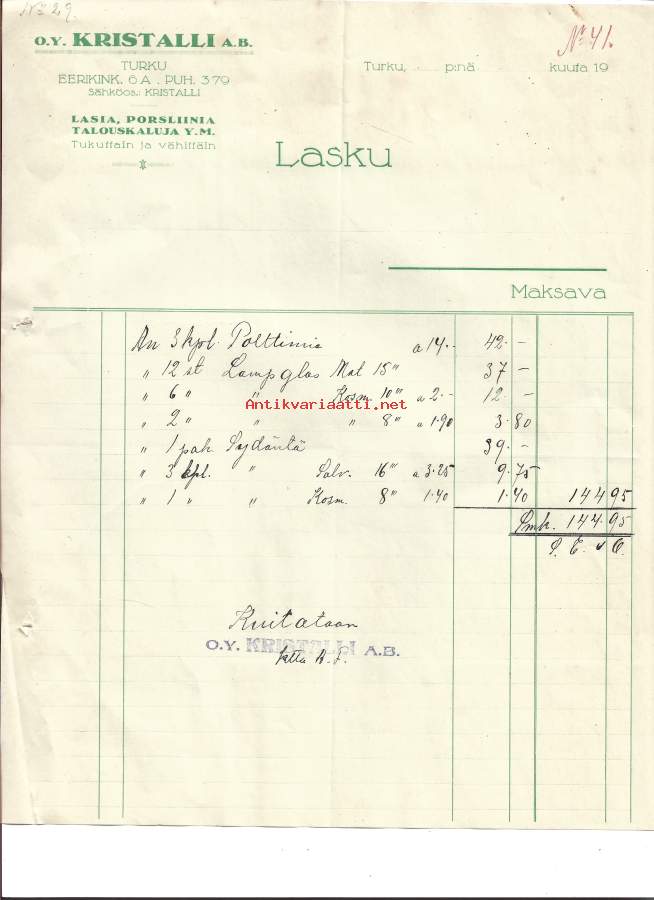 No 29.
O.Y. KRISTALLI A.B.
No 41.
TURKU
EERIKINK. 6A. PUH. 379
Sähköos.: KRISTALLI
Turku, p:nä kuuta 19
LASIA, PORSLIINIA
TALOUSKALUJA Y.M.
Tukuttain ja vähittäin
Lasku
Maksava
An 3 kpl. Polttimia a 14.- 42.-
" 12 st Lampglas Mat 15''' 37-
" 6 " " Kosm. 10''' a 2.- 12.-
Antikvariaatti.net
" 2 " " " 8''' a 1.90 3.80
" 1 pak. Sydäntä 39.-
" 3 kpl. " Salv. 16''' a 3.25 9.75
" 1 " " Kosm. 8''' 1.40 1.40 144 95
Smk. 144.95
S. E. & O.
Kuitataan
O.Y. KRISTALLI A.B.